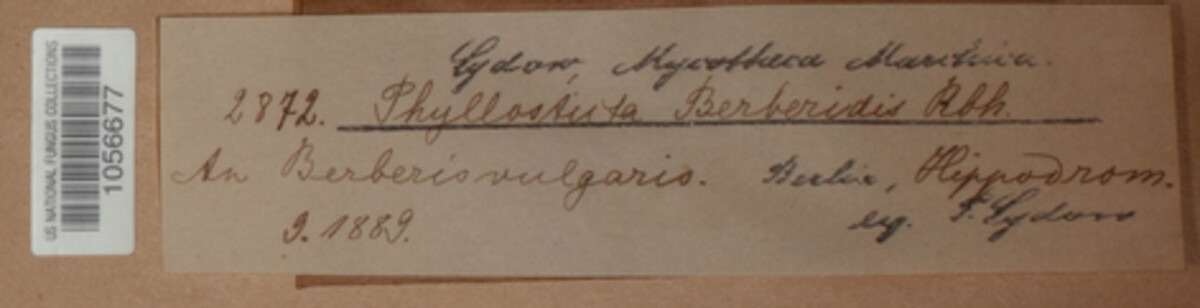 US NATIONAL FUNGUS COLLECTIONS
1056677
Sydow, Mycotheca Marchica.
2872. Phyllosticta Berberidis Rbh.
An Berberis vulgaris. Berlin, Hippodrom.
9. 1889. leg. P. Sydow